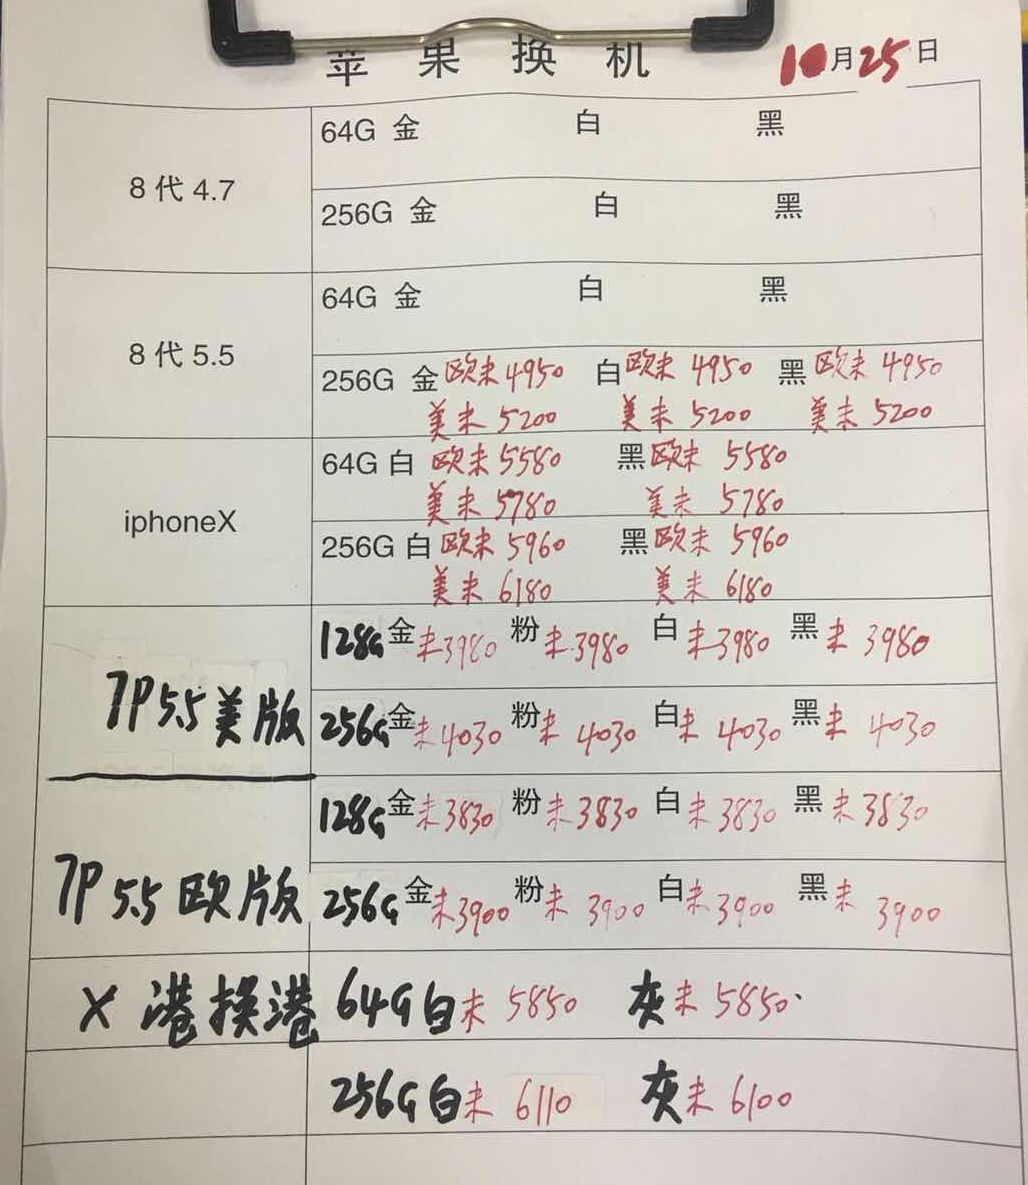 苹果换机 10月25日
8代4.7
64G 金 白 黑
256G 金 白 黑
8代5.5
64G 金 白 黑
256G 金 欧未 4950 白 欧未 4950 黑 欧未 4950
美未 5200 美未 5200 美未 5200
iphoneX
64G 白 欧未 5580 黑 欧未 5580
美未 5780 美未 5780
256G 白 欧未 5960 黑 欧未 5960
美未 6180 美未 6180
7P 5.5 美版
128G 金 未 3980 粉 未 3980 白 未 3980 黑 未 3980
256G 金 未 4030 粉 未 4030 白 未 4030 黑 未 4030
7P 5.5 欧版
128G 金 未 3830 粉 未 3830 白 未 3830 黑 未 3830
256G 金 未 3900 粉 未 3900 白 未 3900 黑 未 3900
X 港换港 64G 白 未 5850 灰 未 5850
256G 白 未 6110 灰 未 6100